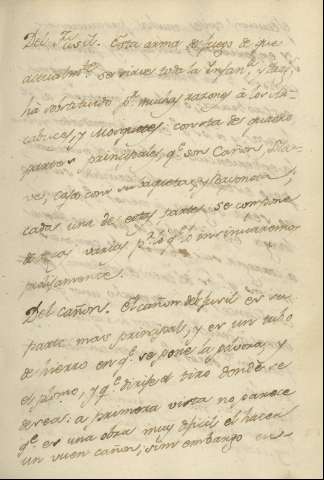 Del Fusil. Esta arma de fuego de que
actualmte. se sirve toda la Infanta., y
ha sostituido pr. muchas razones a los Ar-
cabuces, y Mosquetes: consta de quatro
partes principales qe. son Cañon, Lla-
ve, caja con su baqueta, y Bayoneta;
cada una de estas partes se compone
de otras varias pr. lo qe. lo insinuaremos
prolijamente.
Del cañon. El cañon del fusil es su
parte mas principal, y es un tubo
de hierro en qe. se pone la polvora, y
el plomo, y qe. dirije el tiro donde se
desea. a primera vista no parece
qe. es una obra muy dificil el hacer
un vuen cañon, sim embargo es